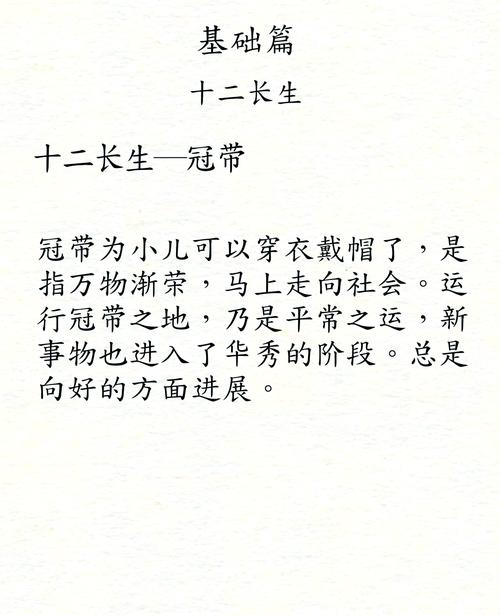 基础篇
十二长生
十二长生—冠带
冠带为小儿可以穿衣戴帽了，是
指万物渐荣，马上走向社会。运
行冠带之地，乃是平常之运，新
事物也进入了华秀的阶段。总是
向好的方面进展。